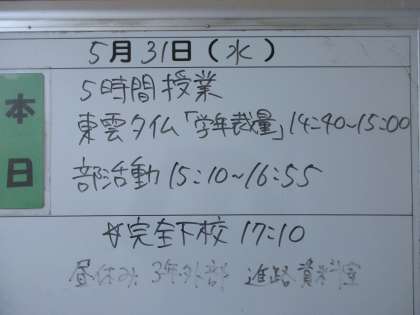 5月31日(水)
本日
5時間授業
東雲タイム「学年裁量」14:40~15:00
部活動15:10~16:55
完全下校 17:10
昼休み 3年外部 進路資料室